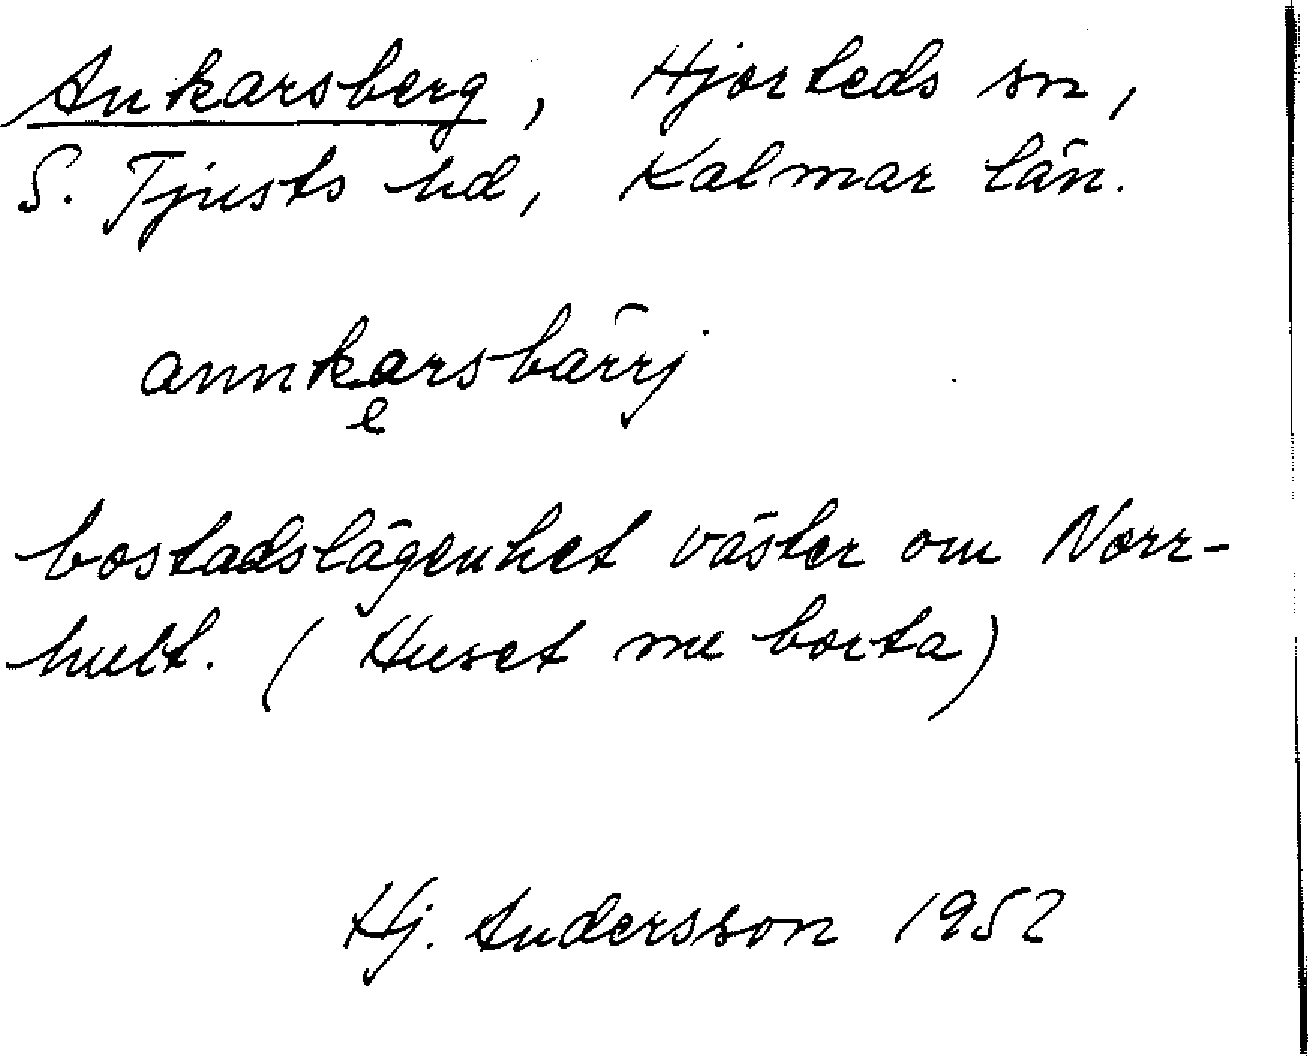 Ankarsberg, Hjorteds sn,
S. Tjusts hd, Kalmar län.
annkarsbärrj
e
bostadslägenhet väster om Norr-
hult. (Huset nu borta)
Hj. Andersson 1952